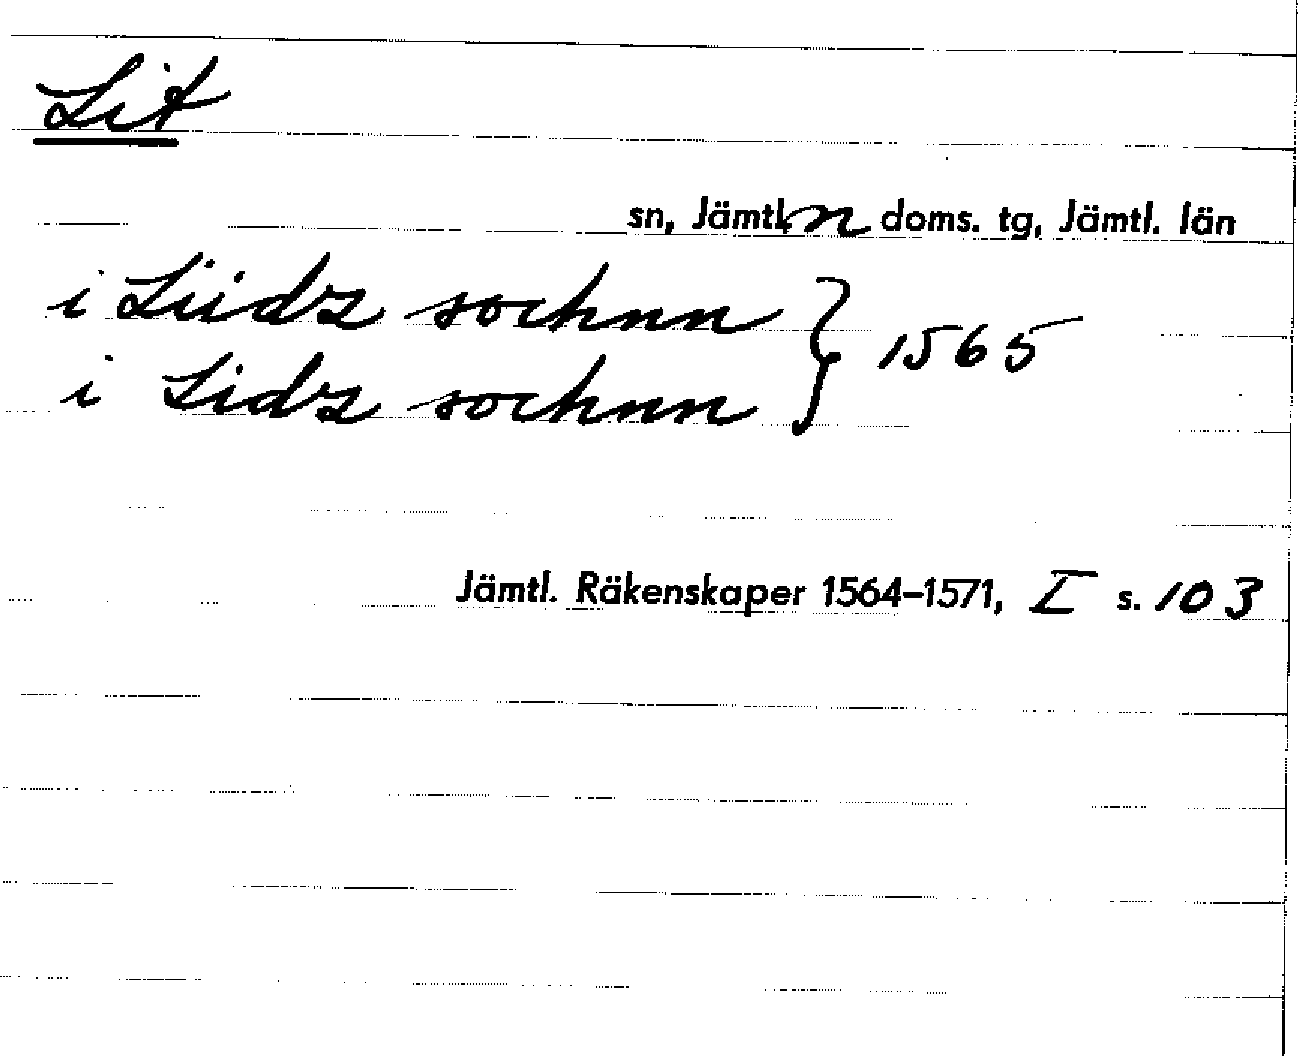 Lit
sn, Jämtl. n doms. tg, Jämtl. län
i Liidz sochnn } 1565
i Lidz sochnn
Jämtl. Räkenskaper 1564–1571, I s. 103